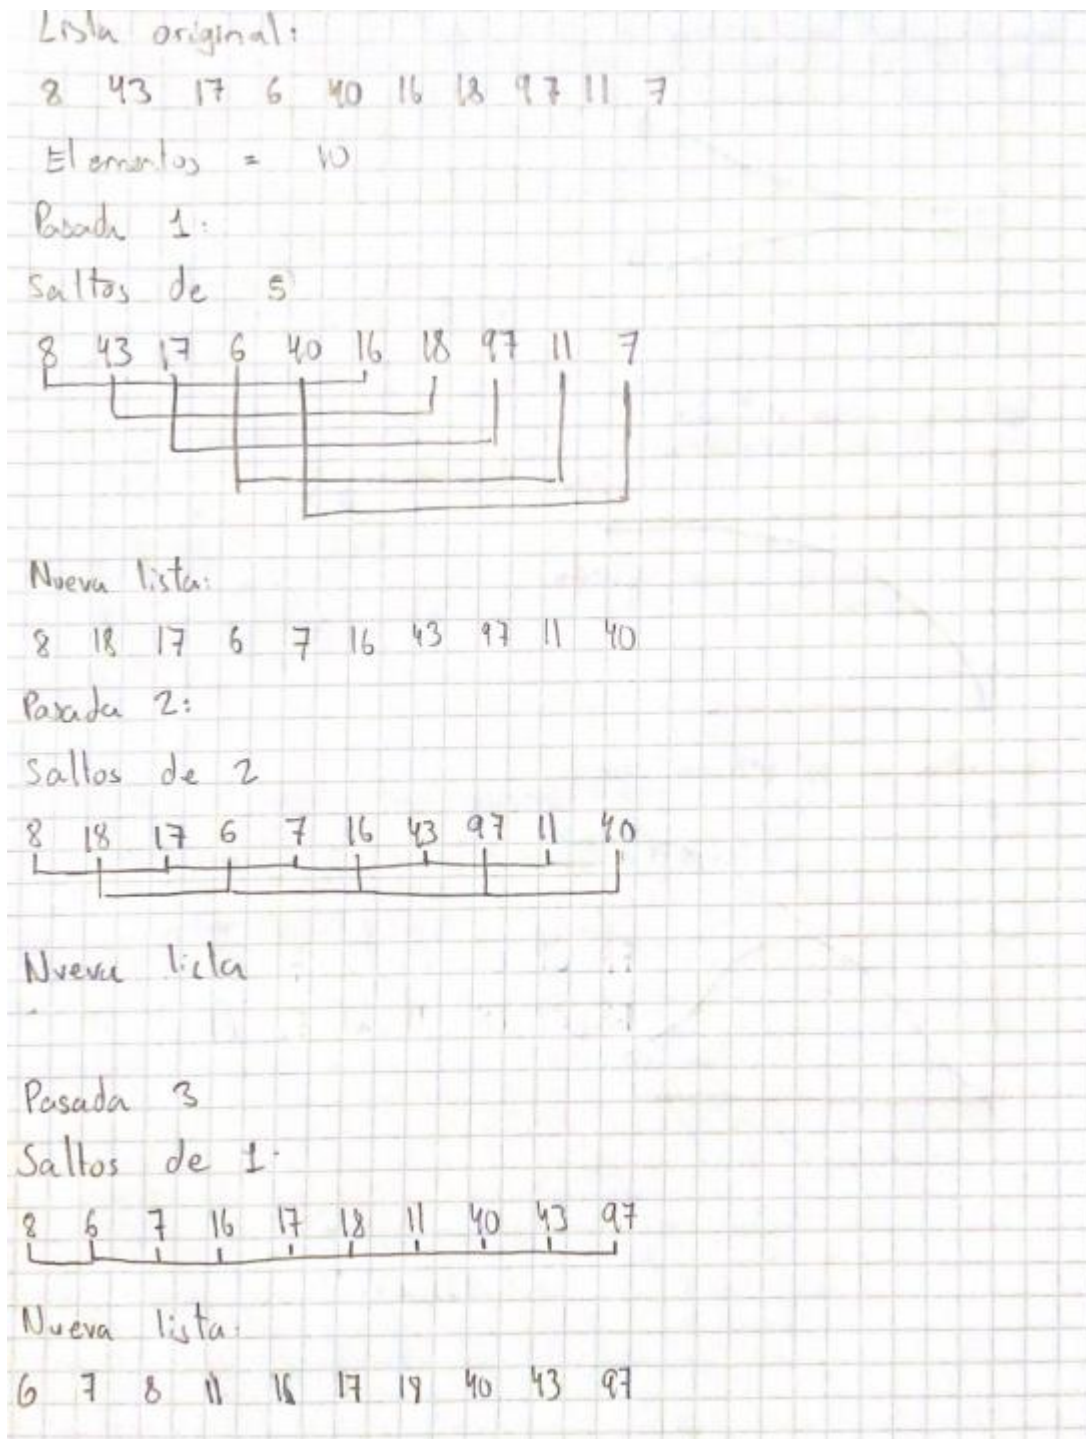 Lista original:
8 43 17 6 40 16 18 97 11 7
Elementos = 10
Pasada 1:
Saltos de 5
8 43 17 6 40 16 18 97 11 7
Nueva lista:
8 18 17 6 7 16 43 97 11 40
Pasada 2:
Saltos de 2
8 18 17 6 7 16 43 97 11 40
Nueva lista
Pasada 3
Saltos de 1.
8 6 7 16 17 18 11 40 43 97
Nueva lista:
6 7 8 11 16 17 18 40 43 97